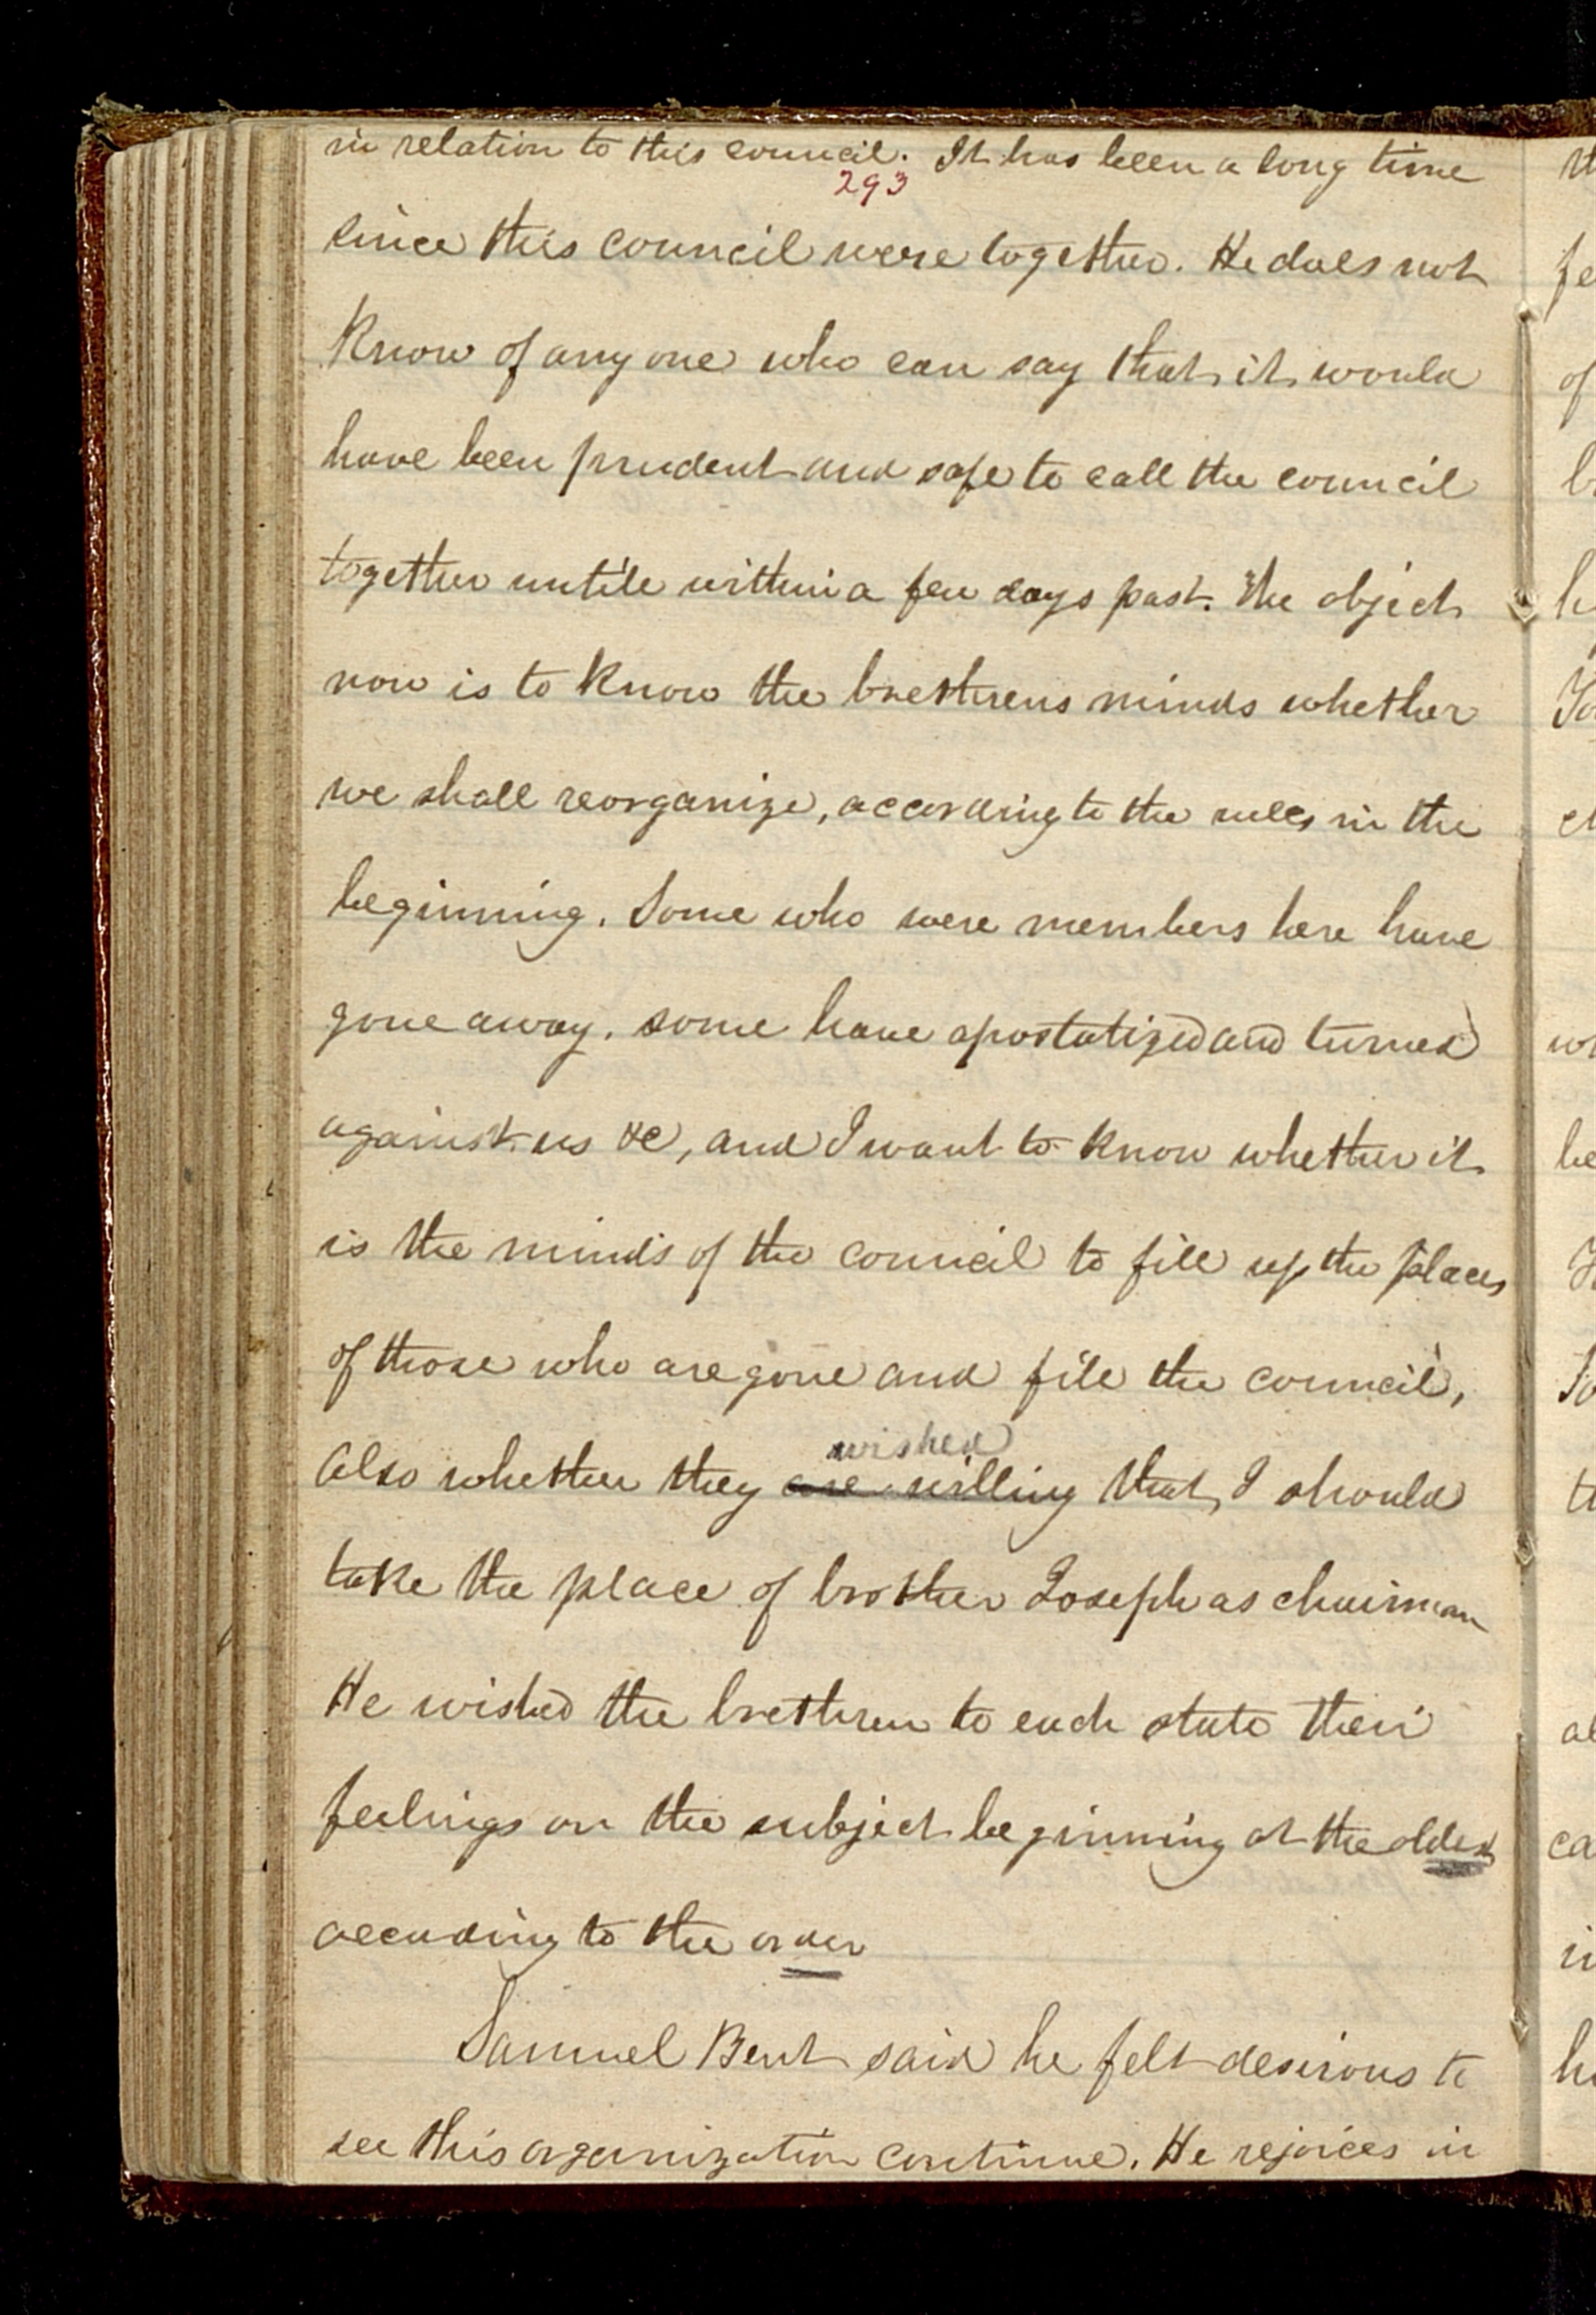 in relation to this council. It has been a long time
293
since this council were together. He does not
know of any one who can say that it would
have been prudent and safe to call the council
together untill within a few days past. The object
now is to know the brethrens minds whether
we shall reorganize, according to the rules in the
beginning. Some who were members here have
gone away. some have apostatized and turned
against us &c, and I want to know whether it
is the minds of the council to fill up the places
of those who are gone and fill the council,
wished
also whether they are willing that I should
take the place of brother Joseph as chairman
He wished the brethren to each state their
feelings on the subject beginning at the oldest
according to the order
Samuel Bent said he felt desirous to
see this organization continue. He rejoices in